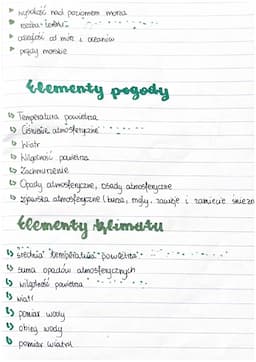 wysokość nad poziomem morza
rzeźba terenu
odległość od mórz i oceanów
prądy morskie
Elementy pogody
Temperatura powietrza
Ciśnienie atmosferyczne
Wiatr
Wilgotność powietrza
Zachmurzenie
Opady atmosferyczne, osady atmosferyczne
zjawiska atmosferyczne (burza, mgły, zawieje i zamiecie śnieżn
Elementy klimatu
średnia temperatura powietrza
suma opadów atmosferycznych
wilgotność powietrza
wiatr
pomiar wody
obieg wody
pomiar wiatru